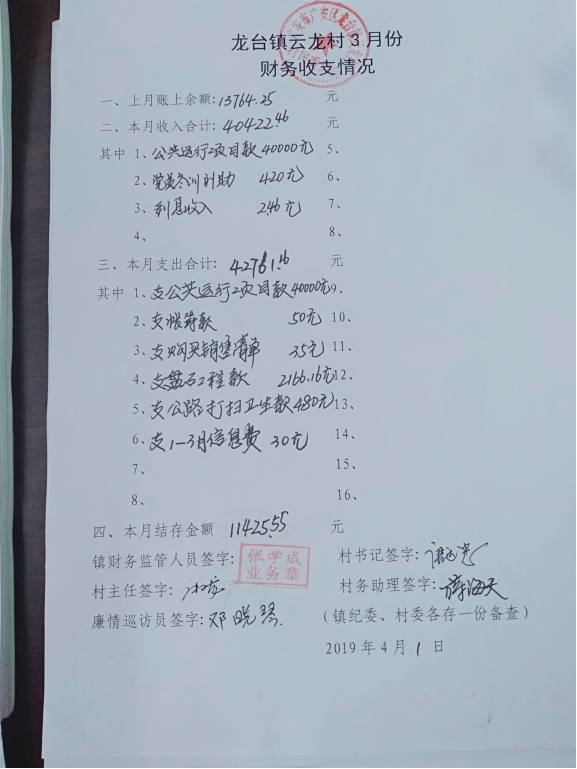 龙台镇云龙村3月份
财务收支情况
一、上月账上余额:13764.25 元
二、本月收入合计:40422.46 元
其中 1、公共运行项目款40000元 5、
2、党员冬训补助 420元 6、
3、利息收入 2.46元 7、
4、 8、
三、本月支出合计: 42761.16 元
其中 1、支公共运行项目款40000元 9、
2、支帐簿款 50元 10、
3、支购买销售清单 35元 11、
4、支盘石工程款 2166.16元 12、
5、支公路打扫卫生款480元 13、
6、支1-3月信息费 30元 14、
7、 15、
8、 16、
四、本月结存金额 11425.55 元
镇财务监管人员签字: 张学成 业务章 村书记签字:
村主任签字: 村务助理签字: 海天
廉情巡访员签字:邓晓琴 (镇纪委、村委各存一份备查)
2019年4月1日